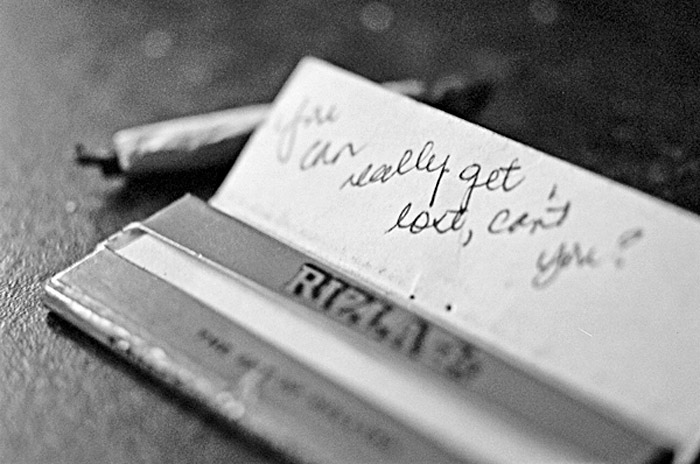 you
can
really get
lost, can't
you?
RIZLA